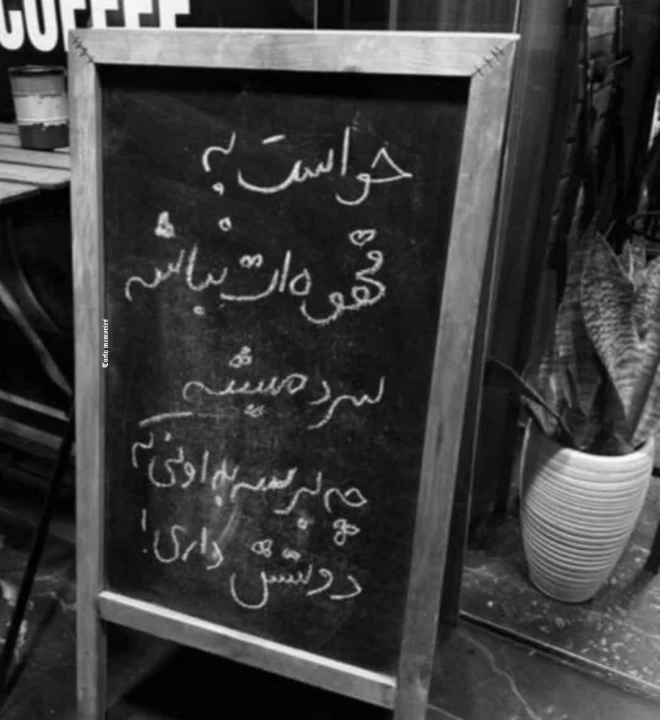 COFFEE
حواست به
قهوه‌ات نباشه
سرد میشه
چه برسه به اونی که
دوستش داری!
Curly memories